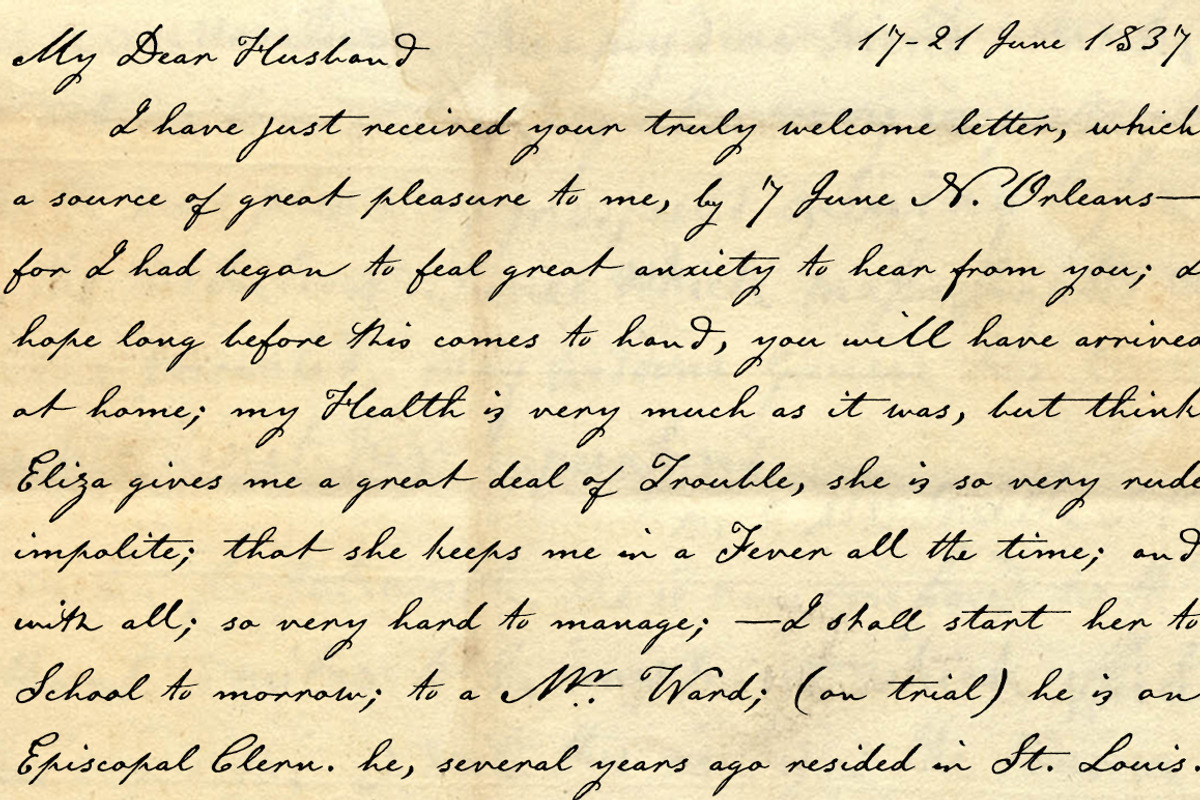 My Dear Husband 17-21 June 1837
I have just received your truly welcome letter, which
a source of great pleasure to me, by 7 June N. Orleans—
for I had began to feal great anxiety to hear from you; I
hope long before this comes to hand, you will have arrived
at home; my Health is very much as it was, but think
Eliza gives me a great deal of Trouble, she is so very rude
impolite; that she keeps me in a Fever all the time; and
with all; so very hard to manage; —I shall start her to
School to morrow; to a Mr. Ward; (on trial) he is an
Episcopal Clern. he, several years ago resided in St. Louis.